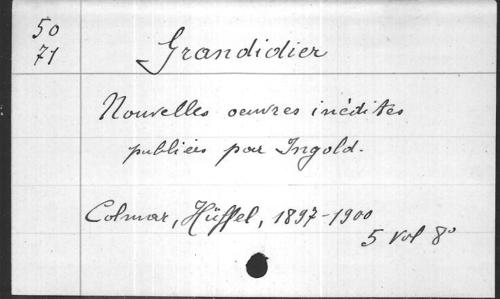 50
71
Grandidier
Nouvelles oeuvres inédites
publiées par Ingold.
Colmar, Hüffel, 1897-1900
5 vol 8°